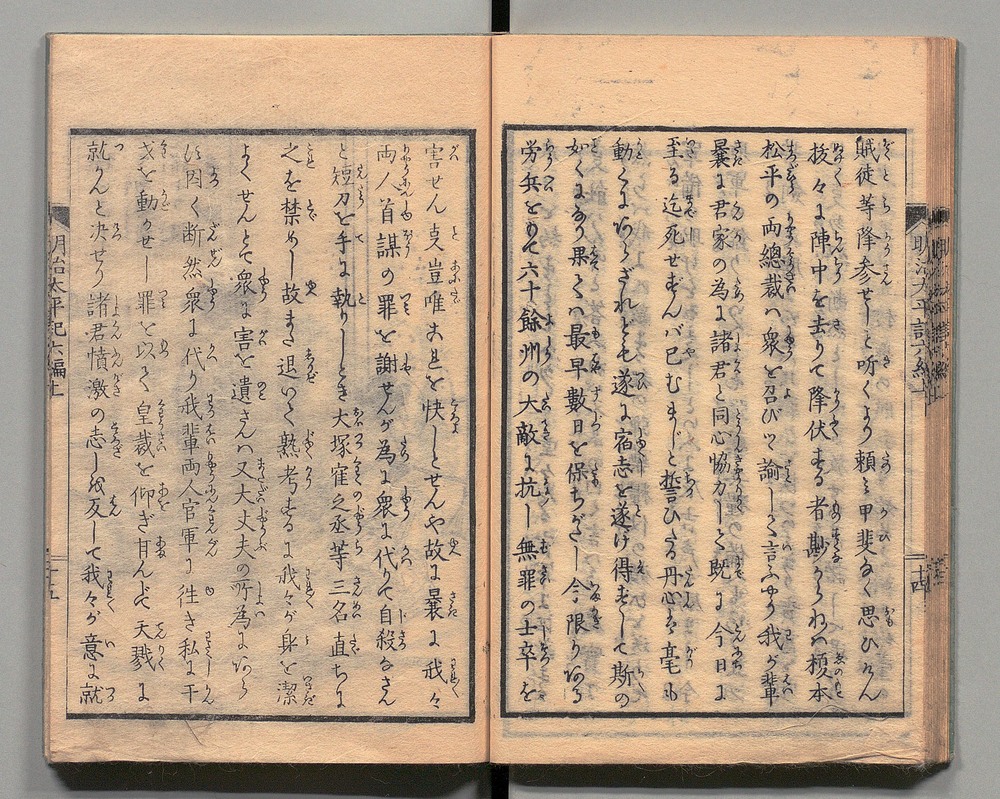 賊徒等降参せしと听くより頼み甲斐なく思ひけん
拔々に陣中を去りて降伏する者尠からねバ榎本
松平の両總裁ハ衆を召びツ諭して言ふやう我が輩
曩に君家の為に諸君と同心恊力して既に今日に
至る迄死せずんバ已むまじと誓ひたる丹心は毫も
動くにあらざれども遂に宿志を遂け得ずして斯の
如くになり果てハ最早數日を保ちがたし今限りある
労兵をもて六十餘州の大敵に抗し無罪の士卒を
害せん㕝豈唯これを快しとせんや故に曩に我々
両人首謀の罪を謝せんが為に衆に代りて自殺なさん
と短刀を手に執りしとき大塚寉之丞等三名直ちに
之を禁めし故また退いて熟考するに我々が身を潔
よくせんとて衆に害を遺さんハ又大丈夫の所為にあら
ず因て断然衆に代り我輩両人官軍に徃き私に干
戈を動かせし罪を以て皇裁を仰ぎ甘んじて天戮に
就かんと决せり諸君憤激の志しを反して我々が意に就
明治太平記六編上
十四
明治太平記六編上
十五